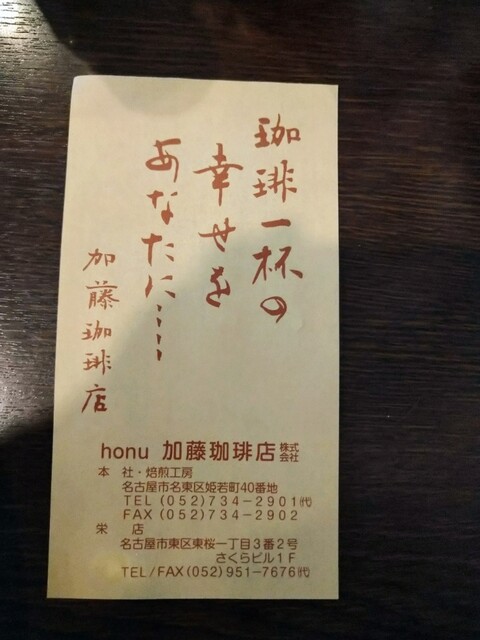 珈琲一杯の
幸せを
あなたに……
加藤珈琲店
honu 加藤珈琲店株式会社
本 社・焙煎工房
名古屋市名東区姫若町40番地
TEL (052)734-2901㈹
FAX (052)734-2902
栄 店
名古屋市東区東桜一丁目3番2号
さくらビル1F
TEL/FAX(052)951-7676㈹